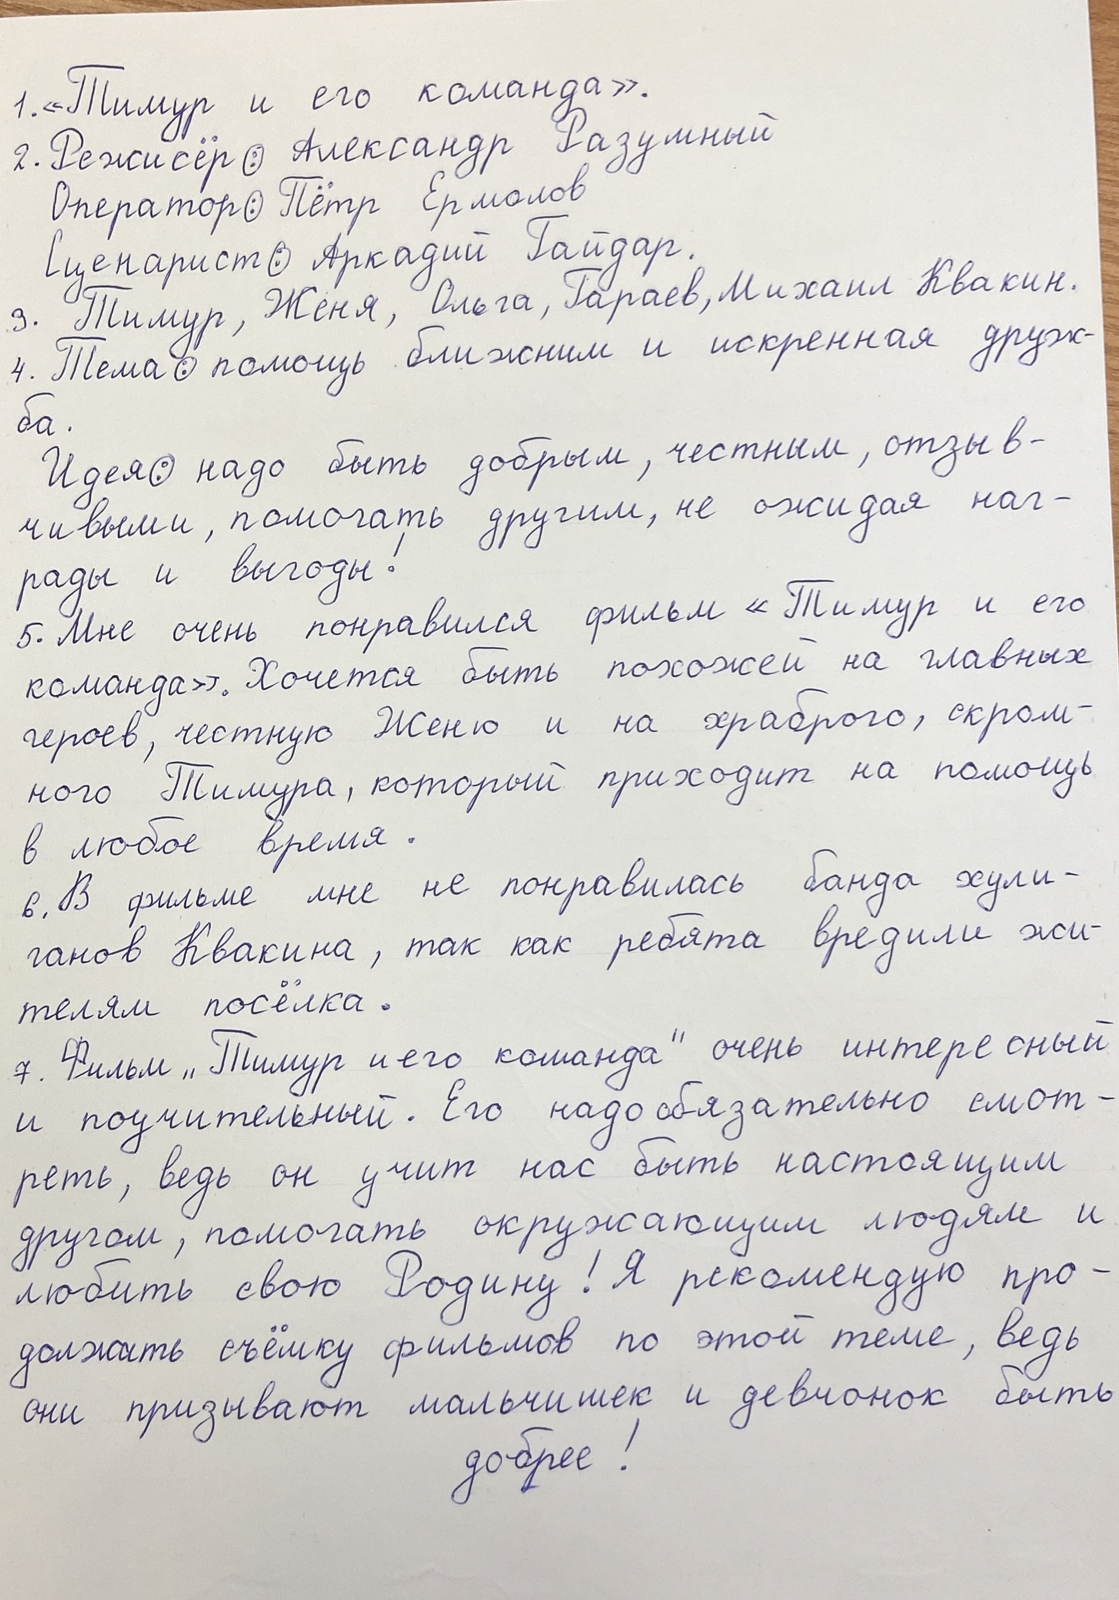 1. «Тимур и его команда».
2. Режисёр: Александр Разумный
Оператор: Пётр Ермолов
Сценарист: Аркадий Гайдар.
3. Тимур, Женя, Ольга, Гараев, Михаил Квакин.
4. Тема: помощь ближним и искренная друж-
ба.
Идея: надо быть добрым, честным, отзыв-
чивыми, помогать другим, не ожидая наг-
рады и выгоды!
5. Мне очень понравился фильм «Тимур и его
команда». Хочется быть похожей на главных
героев, честную Женю и на храброго, скром-
ного Тимура, который приходит на помощь
в любое время.
6. В фильме мне не понравилась банда хули-
ганов Квакина, так как ребята вредили жи-
телям посёлка.
7. Фильм „Тимур и его команда" очень интересный
и поучительный. Его надо обязательно смот-
реть, ведь он учит нас быть настоящим
другом, помогать окружающим людям и
любить свою Родину! Я рекомендую про-
должать съёмку фильмов по этой теме, ведь
они призывают мальчишек и девчонок быть
добрее!